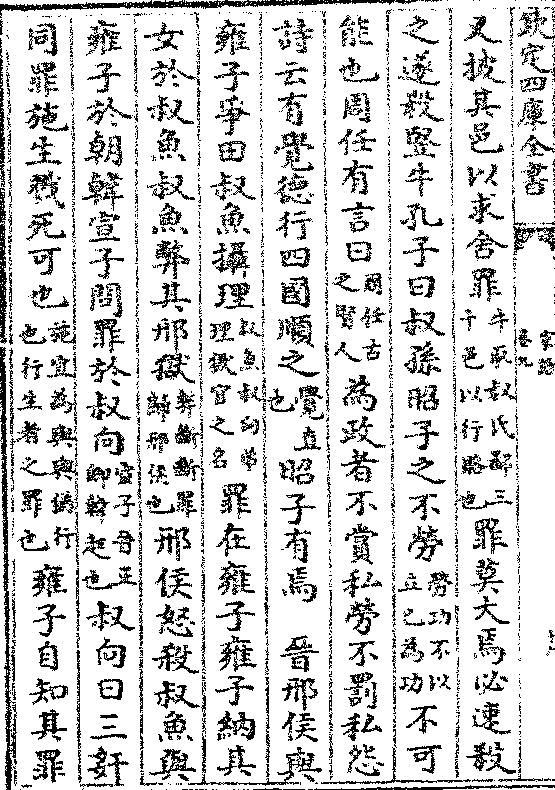 欽定四庫全書
家語
卷九
又披其邑以求舍罪牛取叔氏鄙三十邑以行賂也罪莫大焉必速殺
之遂殺豎牛孔子曰叔孫昭子之不勞勞功不以立己為功不可
能也周任有言曰周任古之賢人為政者不賞私勞不罰私怨
詩云有覺德行四國順之覺直也昭子有焉　晉邢侯與
雍子爭田叔魚攝理叔魚叔向弟理獄官之名罪在雍子雍子納其
女於叔魚叔魚弊其邢獄弊斷斷罪歸邢侯也邢侯怒殺叔魚與
雍子於朝韓宣子問罪於叔向宣子晉正卿韓起也叔向曰三奸
同罪施生戮死可也施宜為與與猶行也行生者之罪也雍子自知其罪